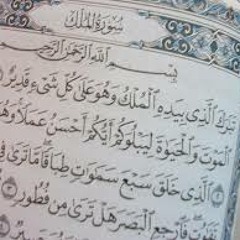 سُورَةُ الْمُلْكِ
بِسْمِ اللَّهِ الرَّحْمَٰنِ الرَّحِيمِ
تَبَارَكَ الَّذِي بِيَدِهِ الْمُلْكُ وَهُوَ عَلَىٰ كُلِّ شَيْءٍ قَدِيرٌ
الْمَوْتَ وَالْحَيَاةَ لِيَبْلُوَكُمْ أَيُّكُمْ أَحْسَنُ عَمَلًا وَهُوَ
الَّذِي خَلَقَ سَبْعَ سَمَاوَاتٍ طِبَاقًا مَّا تَرَىٰ فِي
تَفَاوُتٍ فَارْجِعِ الْبَصَرَ هَلْ تَرَىٰ مِن فُطُورٍ ٣